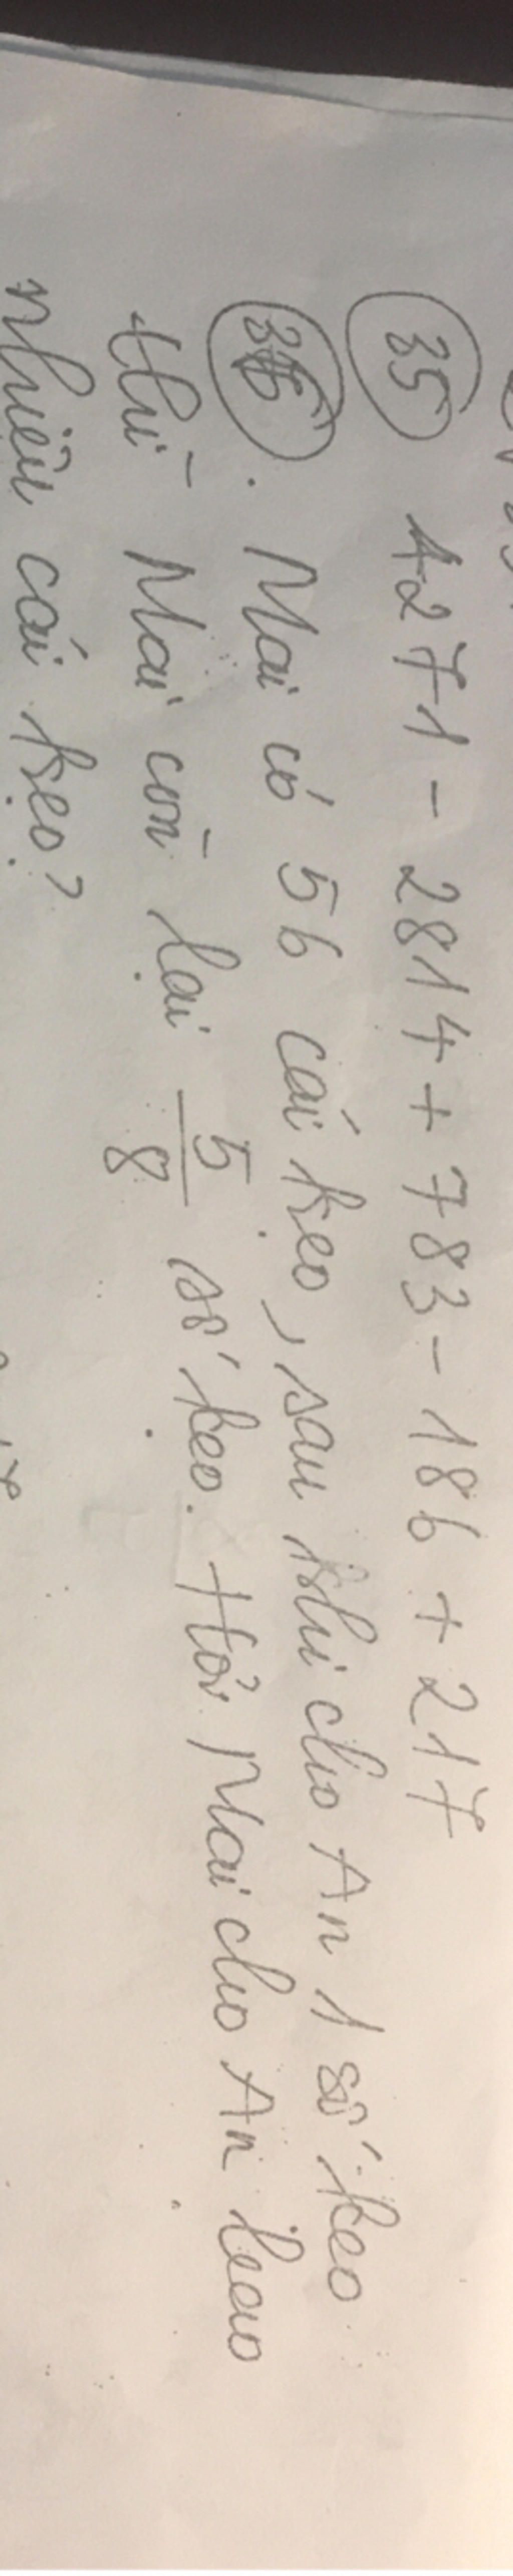 35 4271 - 2814 + 783 - 186 + 217
36. Mai có 56 cái kẹo, sau khi cho An 1 số kẹo
thì Mai còn lại 5/8 số kẹo. Hỏi Mai cho An bao
nhiêu cái kẹo?